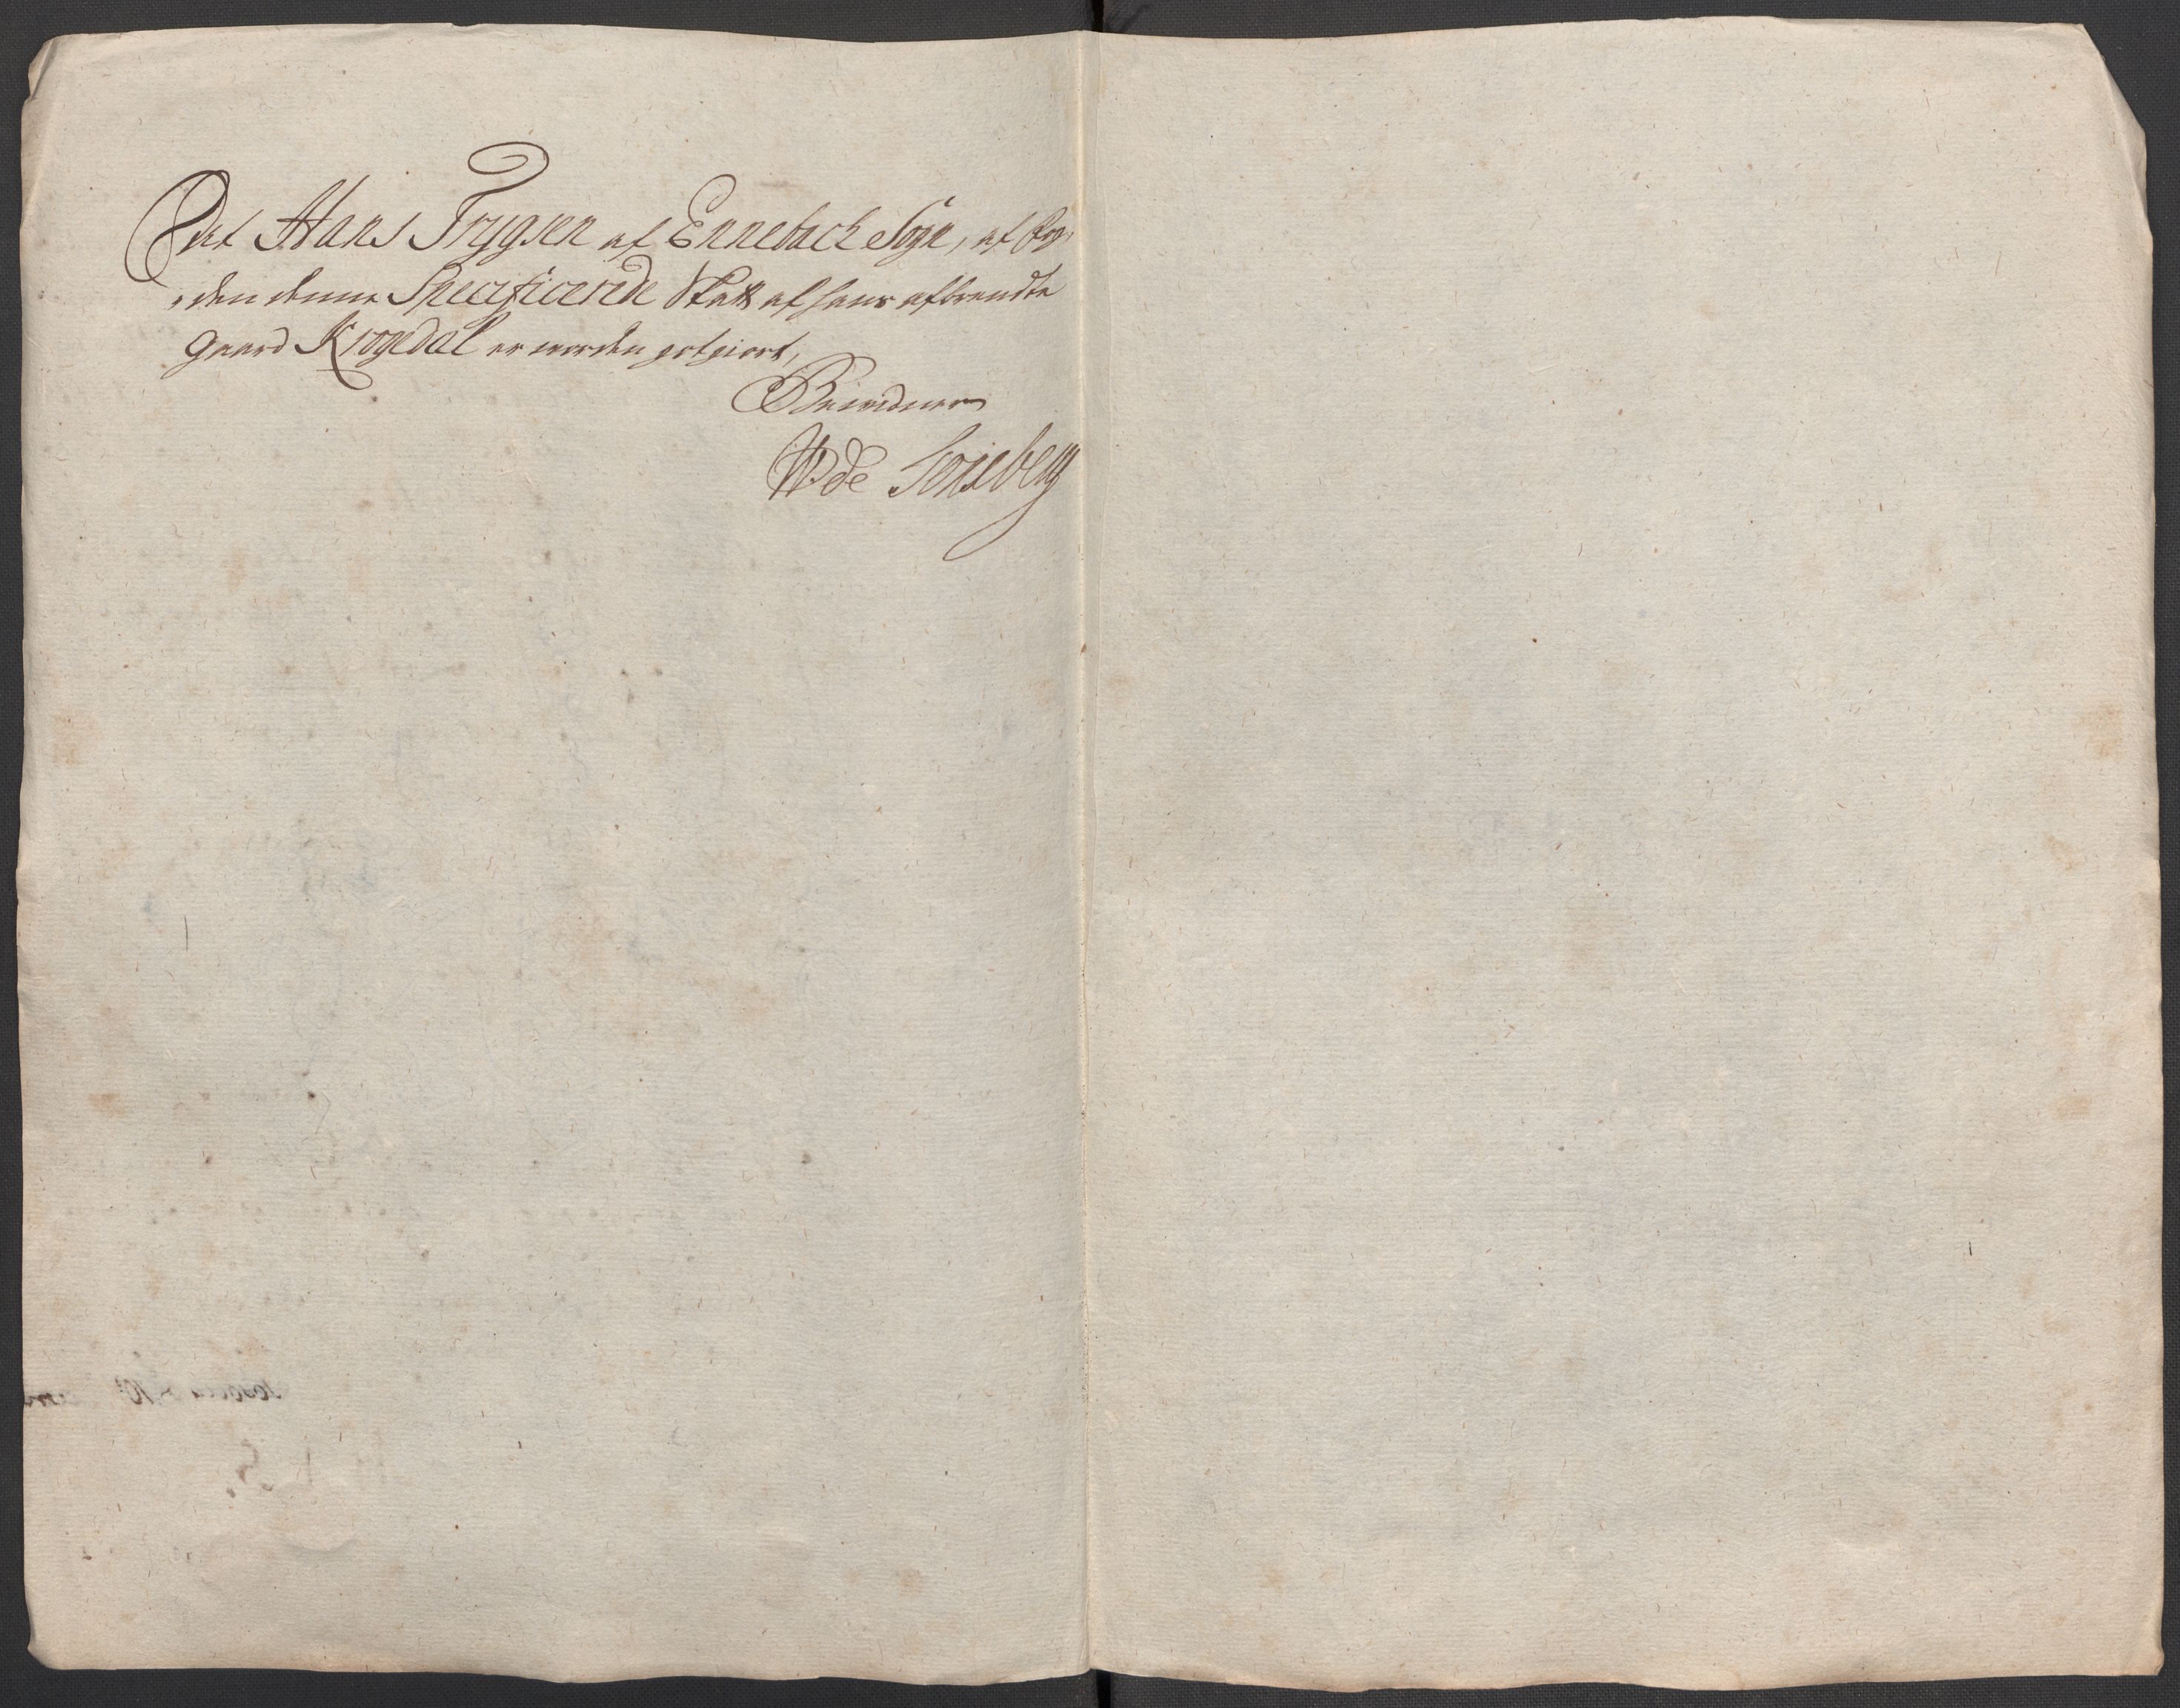 At Hans Trygsen af Ennebach Sogn, af fog,
„den denne Specificerede Skatt af hans afbrendte
gaard Krogedal er worden godgiort,
Bevidner
W de Tonsberg